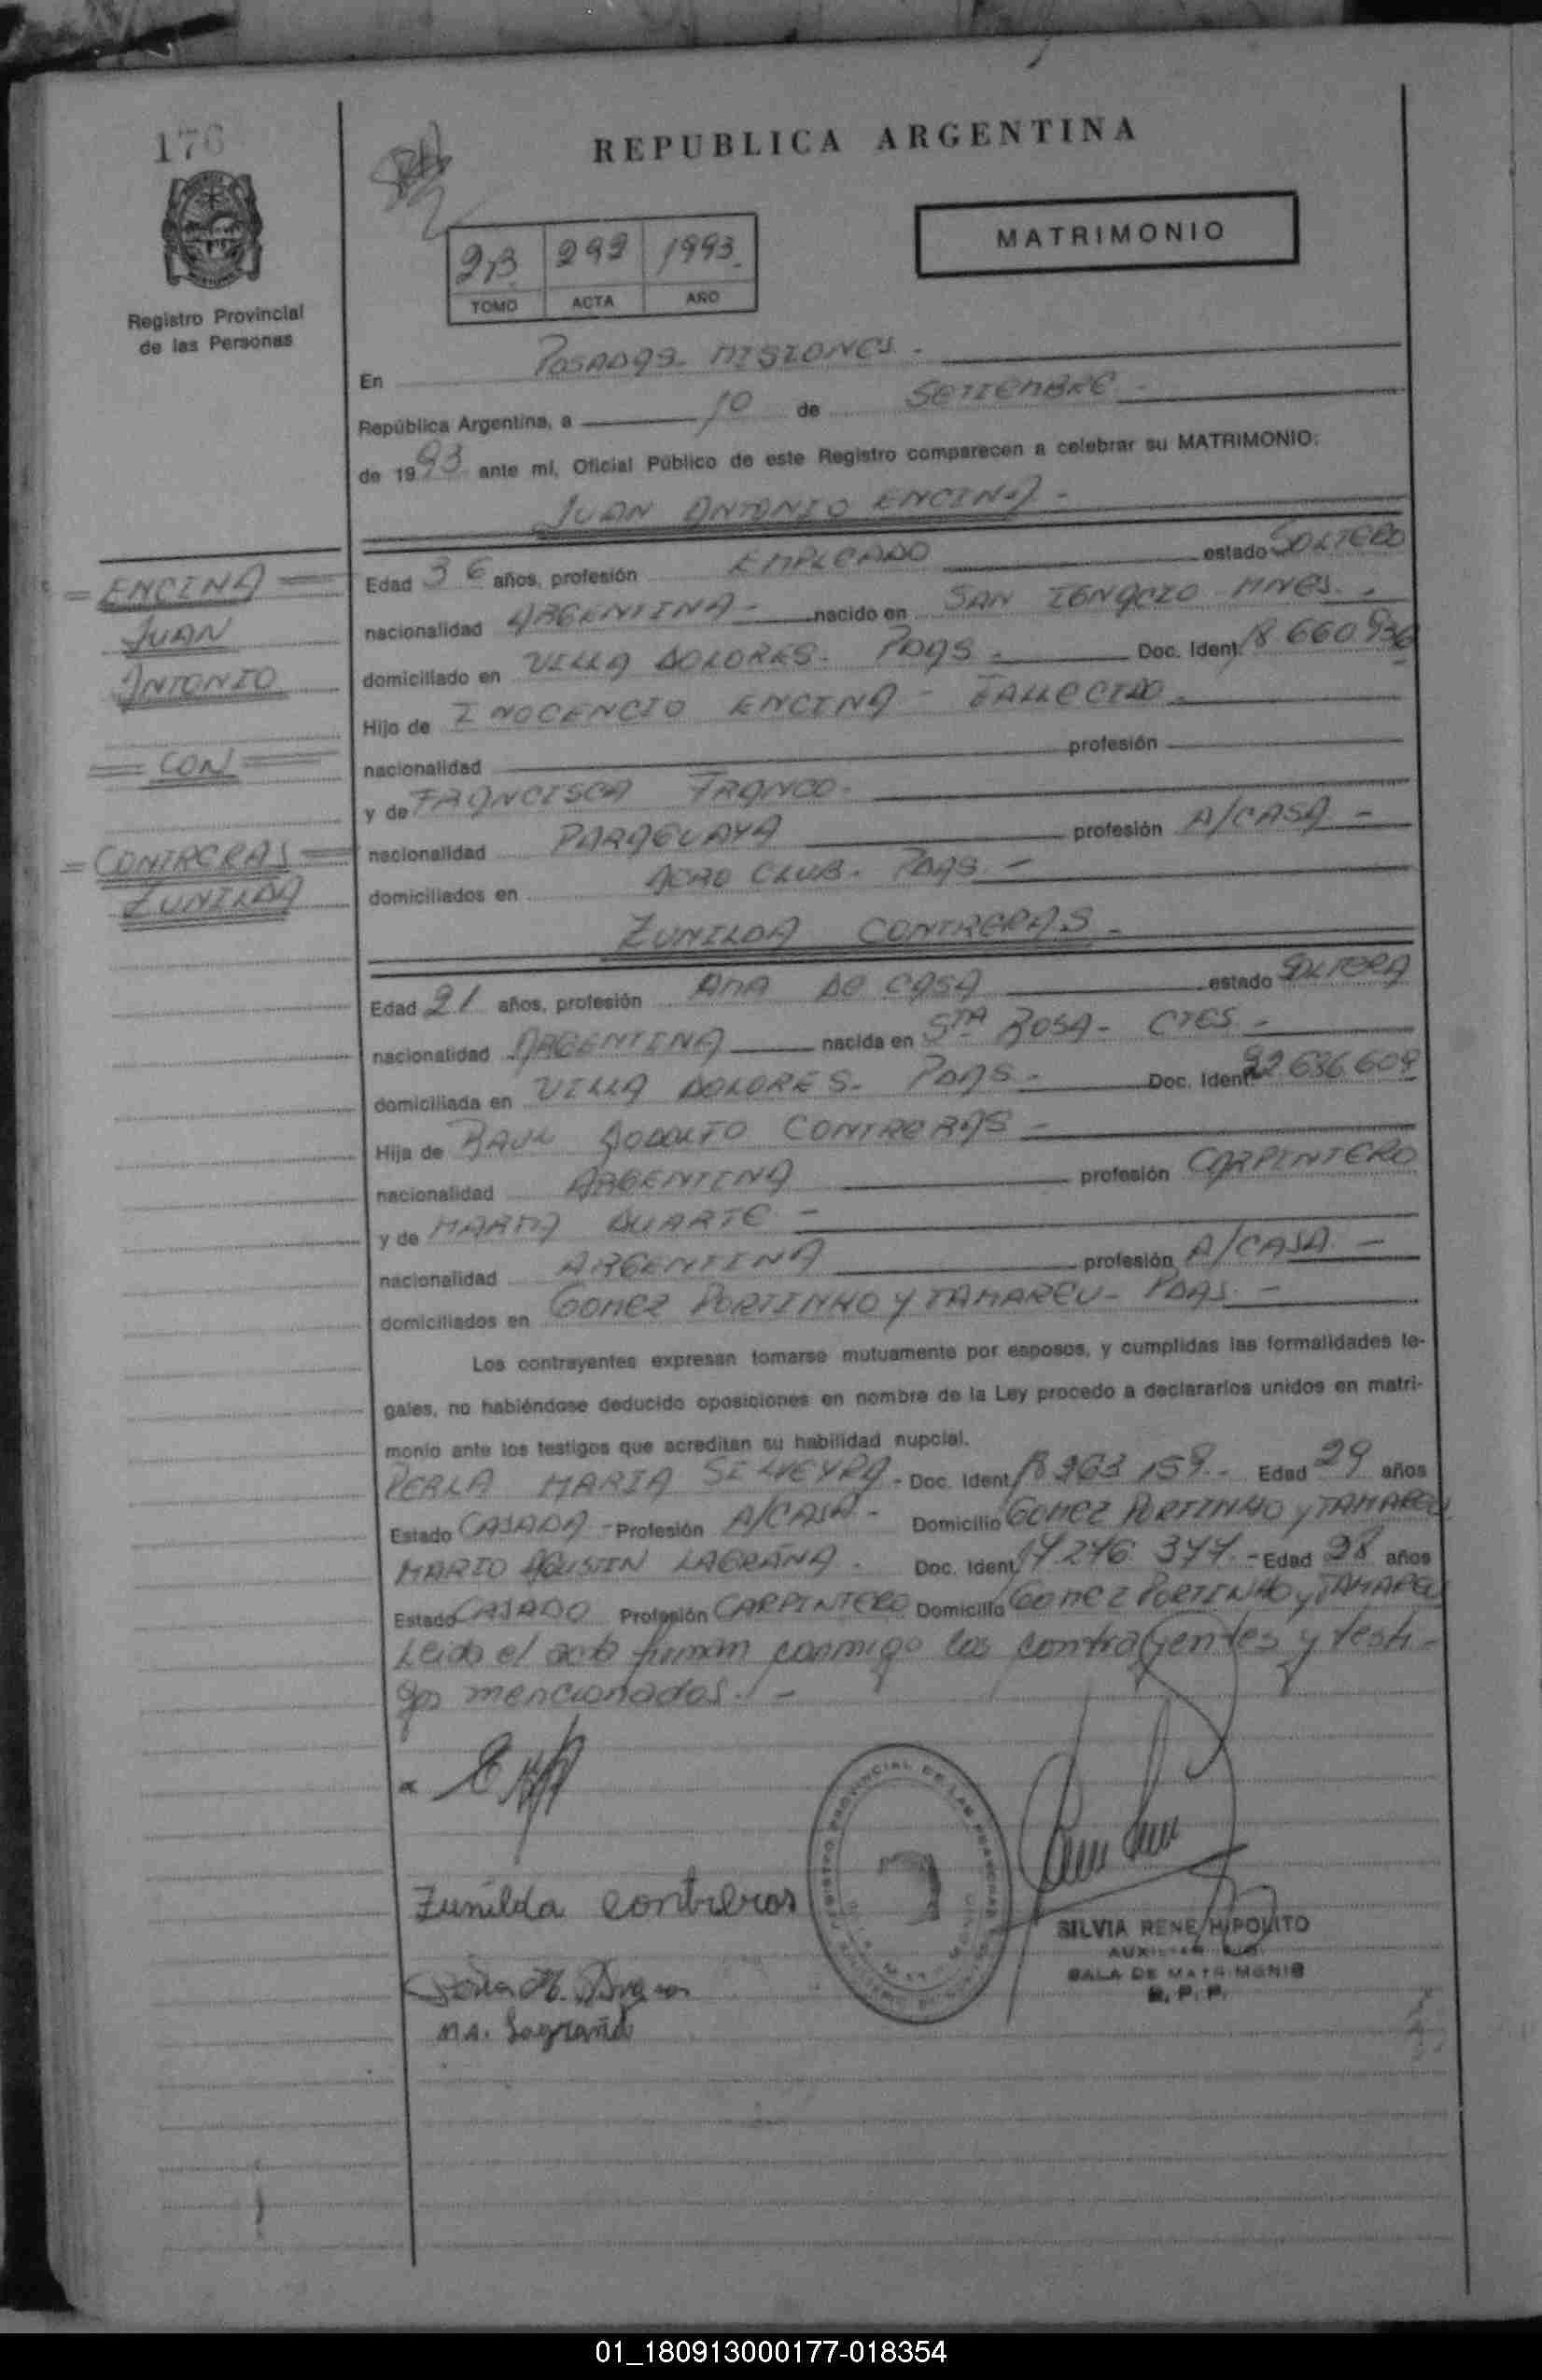 176
REPUBLICA ARGENTINA
MATRIMONIO
2B 292 1993
TOMO ACTA AÑO
Registro Provincial
de las Personas
En POSADAS - MISIONES -
República Argentina, a 10 de SETIEMBRE -
de 1993 ante mí, Oficial Público de este Registro comparecen a celebrar su MATRIMONIO:
JUAN ANTONIO ENCINA -
= ENCINA =
JUAN
ANTONIO
= CON =
= CONTRERAS =
ZUNILDA
Edad 36 años, profesión EMPLEADO estado SOLTERO
nacionalidad ARGENTINA - nacido en SAN IGNACIO - MNES. -
domiciliado en VILLA DOLORES - PDAS - Doc. Ident. 18.660.936
Hijo de INOCENCIO ENCINA - FALLECIDO -
nacionalidad profesión
y de FRANCISCA FRANCO -
nacionalidad PARAGUAYA profesión A/CASA -
domiciliados en AERO CLUB - PDAS -
ZUNILDA CONTRERAS -
Edad 21 años, profesión AMA DE CASA estado SOLTERA
nacionalidad ARGENTINA nacida en STA ROSA - CTES -
domiciliada en VILLA DOLORES - PDAS - Doc. Ident. 22.636.609
Hija de RAUL RODOLFO CONTRERAS -
nacionalidad ARGENTINA profesión CARPINTERO
y de MARTA DUARTE -
nacionalidad ARGENTINA profesión A/CASA -
domiciliados en GOMEZ PORTINHO Y TAMAREU - PDAS -
Los contrayentes expresan tomarse mutuamente por esposos, y cumplidas las formalidades le-
gales, no habiéndose deducido oposiciones en nombre de la Ley procedo a declararlos unidos en matri-
monio ante los testigos que acreditan su habilidad nupcial.
PERLA MARIA SILVEYRA - Doc. Ident. 18.263.159 - Edad 29 años
Estado CASADA - Profesión A/CASA - Domicilio GOMEZ PORTINHO y TAMAREU
MARIO AGUSTIN LAGRAÑA - Doc. Ident. 17.246.377 - Edad 28 años
Estado CASADO Profesión CARPINTERO Domicilio GOMEZ PORTINHO y TAMAREU
Leido el acta firman conmigo los contrayentes y testi-
gos mencionados. -
Zunilda contreras
M A. Lagraña
REGISTRO PROVINCIAL DE LAS PERSONAS
SILVIA RENE HIPOLITO
SALA DE MATRIMONIO
R. P. P.
01_180913000177-018354